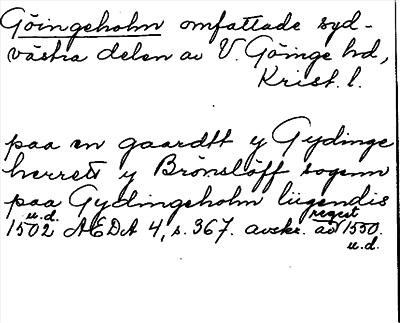 Göingeholm omfattade syd-
västra delen av V. Göinge hd,
Krist. l.
paa en gaardtt y Gydinge
herrett y Brönslöff sogenn
paa Gydingeholm liigendis
u.d. regest
1502 AEDA 4, s. 367. avskr. av 1550.
u.d.